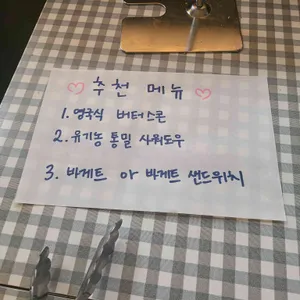 추천 메뉴
1. 영국식 버터스콘
2. 유기농 통밀 사워도우
3. 바게트 or 바게트 샌드위치